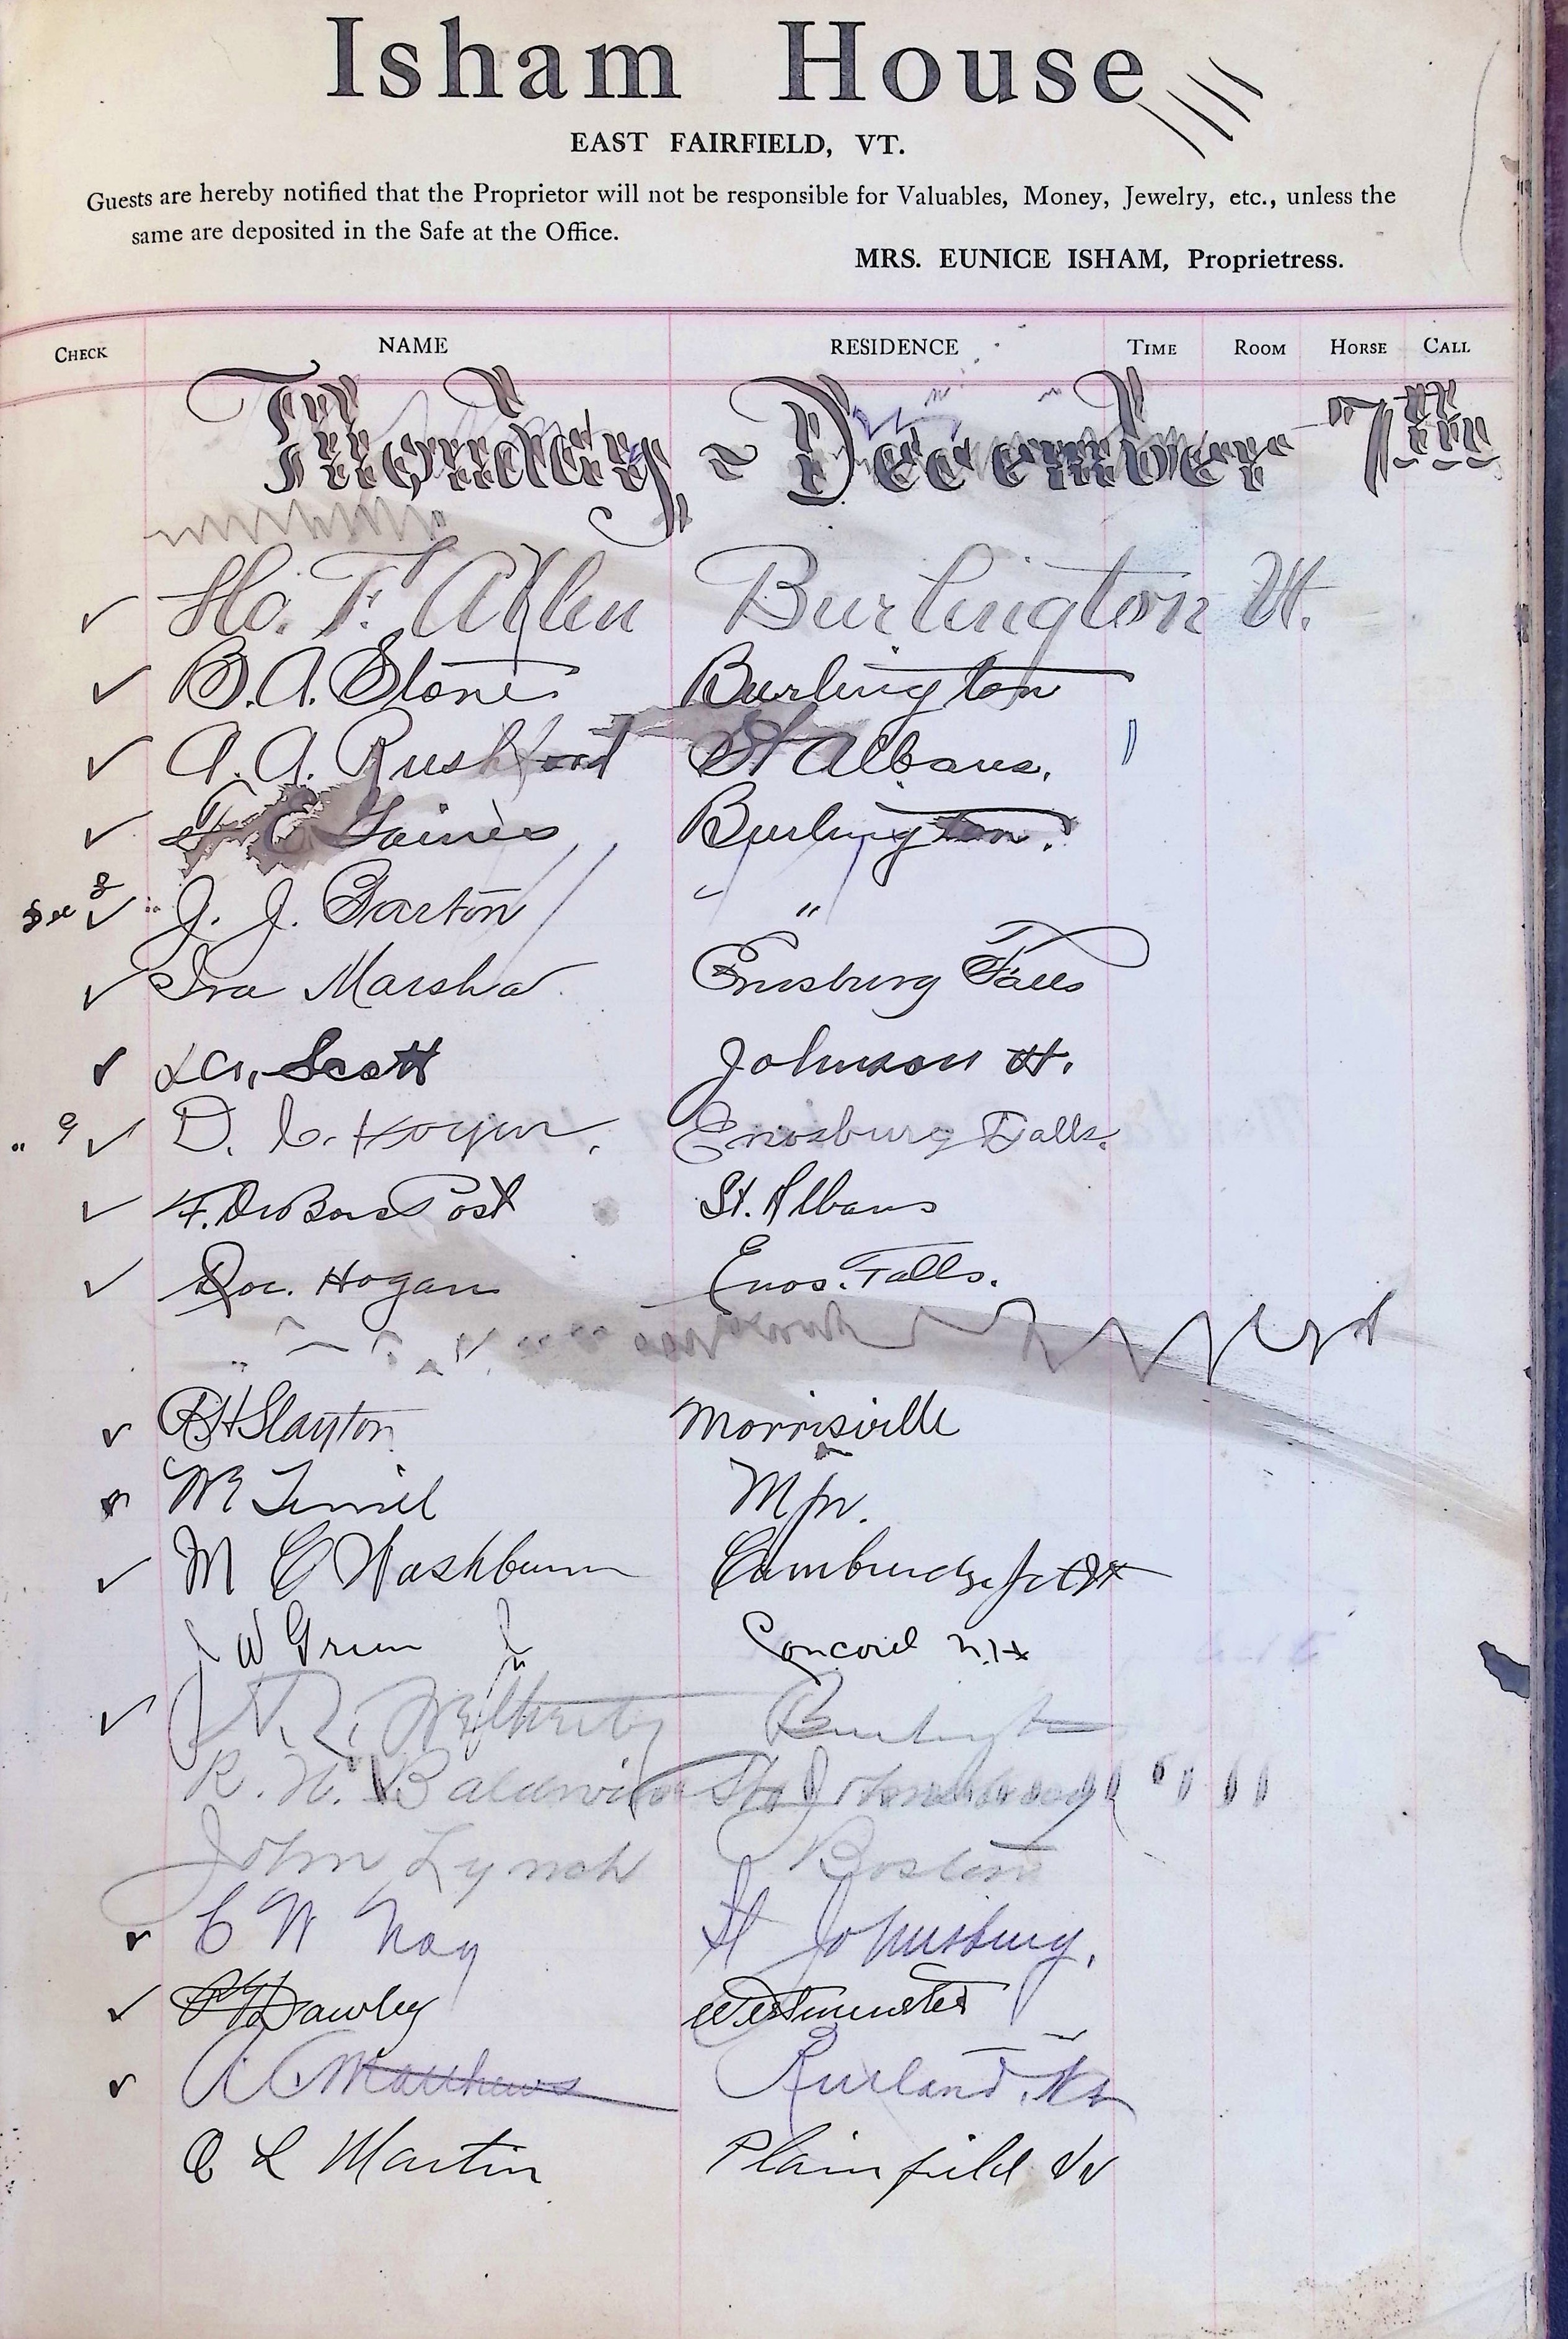 Isham House
EAST FAIRFIELD, VT.
Guests are hereby notified that the Proprietor will not be responsible for Valuables, Money, Jewelry, etc., unless the
same are deposited in the Safe at the Office.
MRS. EUNICE ISHAM, Proprietress.
CHECK NAME RESIDENCE TIME ROOM HORSE CALL
December 7th
F. Allen Burlington Vt.
B. A. Stone Burlington
A. A. Rushford St Albans.
E Gaines Burlington.
Dec 8 J. J. Barton " "
Ira Marsh Enosburg Falls
Scott Johnson Vt.
" 9 D. Enosburg Falls.
F. Post St. Albans
Doc. Hogan Enos. Falls.
Slayton Morrisville
Terrill
M C Washburn Cambridge Jct Vt
J W Green Jr Concord N.H
Burlington
R. W. Baldwin St Johnsbury
John Lynch Boston
C W Nay St Johnsbury.
Dawley Westminster
A C Matthews Rutland, Vt
O L Martin Plainfield Vt